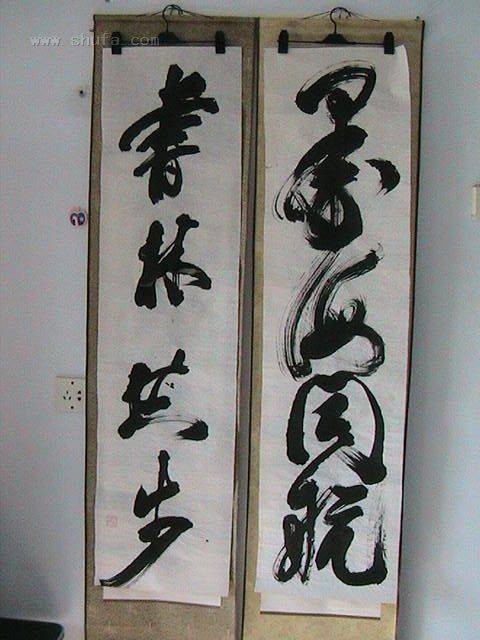 www.shufa.com
墨海同航
書林共步